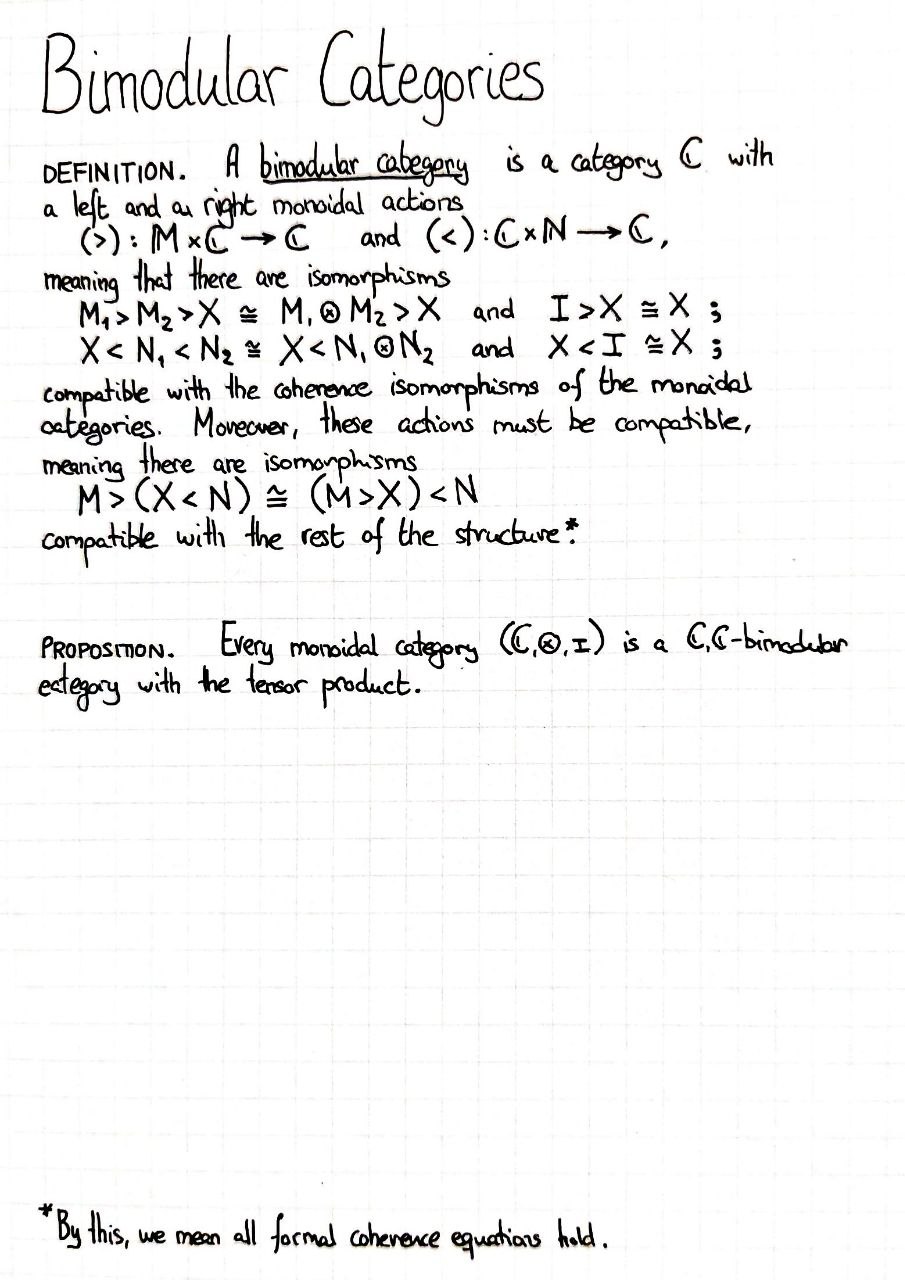 Bimodular Categories
DEFINITION. A bimodular category is a category ℂ with
a left and a right monoidal actions
(>) : 𝕄 × ℂ → ℂ and (<) : ℂ × ℕ → ℂ,
meaning that there are isomorphisms
M₁ > M₂ > X ≅ M₁ ⊗ M₂ > X and I > X ≅ X ;
X < N₁ < N₂ ≅ X < N₁ ⊗ N₂ and X < I ≅ X ;
compatible with the coherence isomorphisms of the monoidal
categories. Moreover, these actions must be compatible,
meaning there are isomorphisms
M > (X < N) ≅ (M > X) < N
compatible with the rest of the structure*.
PROPOSITION. Every monoidal category (ℂ, ⊗, I) is a ℂ,ℂ-bimodular
category with the tensor product.
*By this, we mean all formal coherence equations hold.